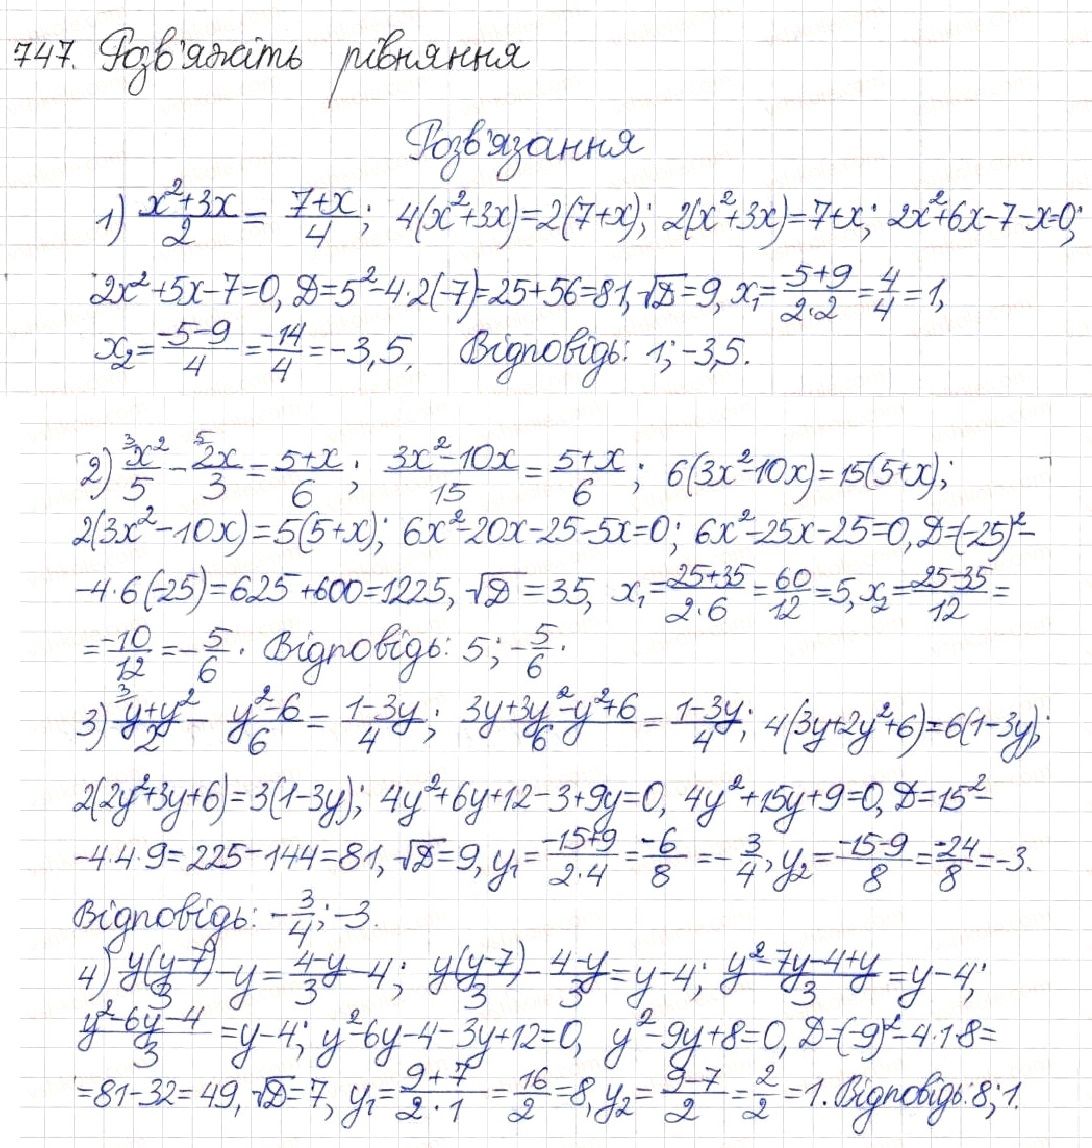 747. Розв'яжіть рівняння
Розв'язання
1) (x²+3x)/2 = (7+x)/4; 4(x²+3x)=2(7+x); 2(x²+3x)=7+x; 2x²+6x-7-x=0;
2x²+5x-7=0, D=5²-4·2(-7)=25+56=81, √D=9, x₁=(-5+9)/(2·2)=4/4=1,
x₂=(-5-9)/4=-14/4=-3,5. Відповідь: 1; -3,5.
2) ³x²/5 - ⁵2x/3 = (5+x)/6; (3x²-10x)/15 = (5+x)/6; 6(3x²-10x)=15(5+x);
2(3x²-10x)=5(5+x); 6x²-20x-25-5x=0; 6x²-25x-25=0, D=(-25)²-
-4·6(-25)=625+600=1225, √D=35, x₁=(25+35)/(2·6)=60/12=5, x₂=(25-35)/12=
=-10/12=-5/6. Відповідь: 5; -5/6.
3) ³(y+y²)/2 - (y²-6)/6 = (1-3y)/4; (3y+3y²-y²+6)/6 = (1-3y)/4; 4(3y+2y²+6)=6(1-3y);
2(2y²+3y+6)=3(1-3y); 4y²+6y+12-3+9y=0, 4y²+15y+9=0, D=15²-
-4·4·9=225-144=81, √D=9, y₁=(-15+9)/(2·4)=-6/8=-3/4, y₂=(-15-9)/8=-24/8=-3.
Відповідь: -3/4; -3.
4) y(y-7)/3 - y = (4-y)/3 - 4; y(y-7)/3 - (4-y)/3 = y-4; (y²-7y-4+y)/3 = y-4;
(y²-6y-4)/3 = y-4; y²-6y-4-3y+12=0, y²-9y+8=0, D=(-9)²-4·1·8=
=81-32=49, √D=7, y₁=(9+7)/(2·1)=16/2=8, y₂=(9-7)/2=2/2=1. Відповідь: 8; 1.